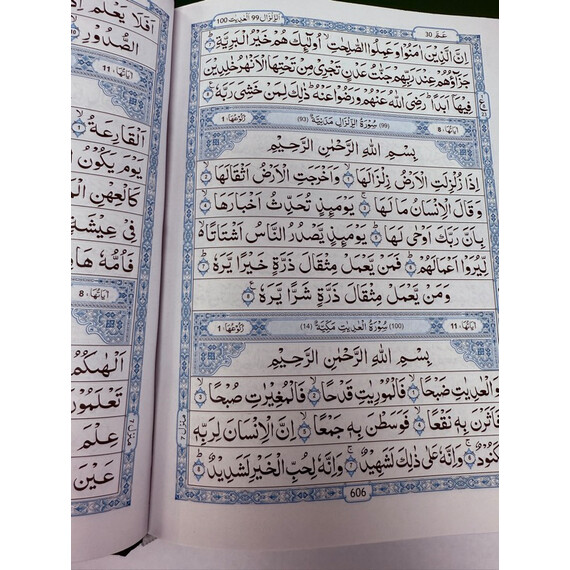 عـمّ 30
الزلزال 99 العديت 100
اِنَّ الَّذِيْنَ اٰمَنُوْا وَعَمِلُوا الصّٰلِحٰتِ ۙ اُولٰٓئِكَ هُمْ خَيْرُ الْبَرِيَّةِ ۞ؕ
جَزَآؤُهُمْ عِنْدَ رَبِّهِمْ جَنّٰتُ عَدْنٍ تَجْرِيْ مِنْ تَحْتِهَا الْاَنْهٰرُ خٰلِدِيْنَ
فِيْهَاۤ اَبَدًا ؕ رَضِيَ اللّٰهُ عَنْهُمْ وَرَضُوْا عَنْهُ ؕ ذٰلِكَ لِمَنْ خَشِيَ رَبَّهٗ ۞
اٰيَاتُهَا 8 (99) سُوْرَةُ الزِّلْزَالِ مَدَنِيَّةٌ (93) رُكُوْعُهَا 1
بِسْمِ اللّٰهِ الرَّحْمٰنِ الرَّحِيْمِ
اِذَا زُلْزِلَتِ الْاَرْضُ زِلْزَالَهَا ۙ 1 وَاَخْرَجَتِ الْاَرْضُ اَثْقَالَهَا ۙ 2
وَقَالَ الْاِنْسَانُ مَا لَهَا ۚ 3 يَوْمَئِذٍ تُحَدِّثُ اَخْبَارَهَا ۙ 4
بِاَنَّ رَبَّكَ اَوْحٰى لَهَا ؕ 5 يَوْمَئِذٍ يَّصْدُرُ النَّاسُ اَشْتَاتًا ۙ۬
لِّيُرَوْا اَعْمَالَهُمْ ؕ 6 فَمَنْ يَّعْمَلْ مِثْقَالَ ذَرَّةٍ خَيْرًا يَّرَهٗ ؕ 7
وَمَنْ يَّعْمَلْ مِثْقَالَ ذَرَّةٍ شَرًّا يَّرَهٗ 8
اٰيَاتُهَا 11 (100) سُوْرَةُ الْعٰدِيٰتِ مَكِّيَّةٌ (14) رُكُوْعُهَا 1
بِسْمِ اللّٰهِ الرَّحْمٰنِ الرَّحِيْمِ
وَالْعٰدِيٰتِ ضَبْحًا ۙ 1 فَالْمُوْرِيٰتِ قَدْحًا ۙ 2 فَالْمُغِيْرٰتِ صُبْحًا ۙ 3
فَاَثَرْنَ بِهٖ نَقْعًا ۙ 4 فَوَسَطْنَ بِهٖ جَمْعًا ۙ 5 اِنَّ الْاِنْسَانَ لِرَبِّهٖ
لَكَنُوْدٌ ۚ 6 وَاِنَّهٗ عَلٰى ذٰلِكَ لَشَهِيْدٌ ۚ 7 وَاِنَّهٗ لِحُبِّ الْخَيْرِ لَشَدِيْدٌ ؕ 8
606
اَفَلَا يَعْلَمُ اِذَا
الصُّدُوْرِ
اٰيَاتُهَا 11
اَلْقَارِعَةُ
يَوْمَ يَكُوْنُ
كَالْعِهْنِ
فِيْ عِيْشَةٍ
فَاُمُّهٗ
اٰيَاتُهَا 8
اَلْهٰىكُمُ
تَعْلَمُوْنَ
عِلْمَ
عَيْنَ
مَنْزِل 7